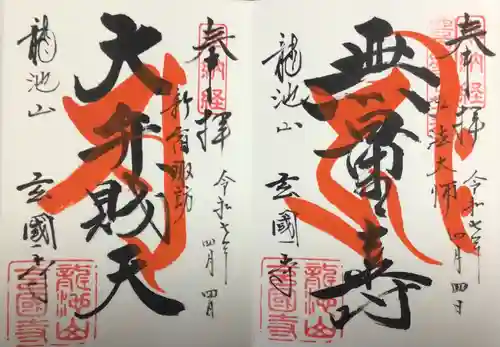 奉拝
奉納経
弘法大師
令和七年
四月四日
無量寿
龍池山
玄國寺
龍池山玄國寺
奉拝
奉納経
新宿諏訪
令和七年
四月四日
大弁財天
龍池山
玄國寺
龍池山玄國寺